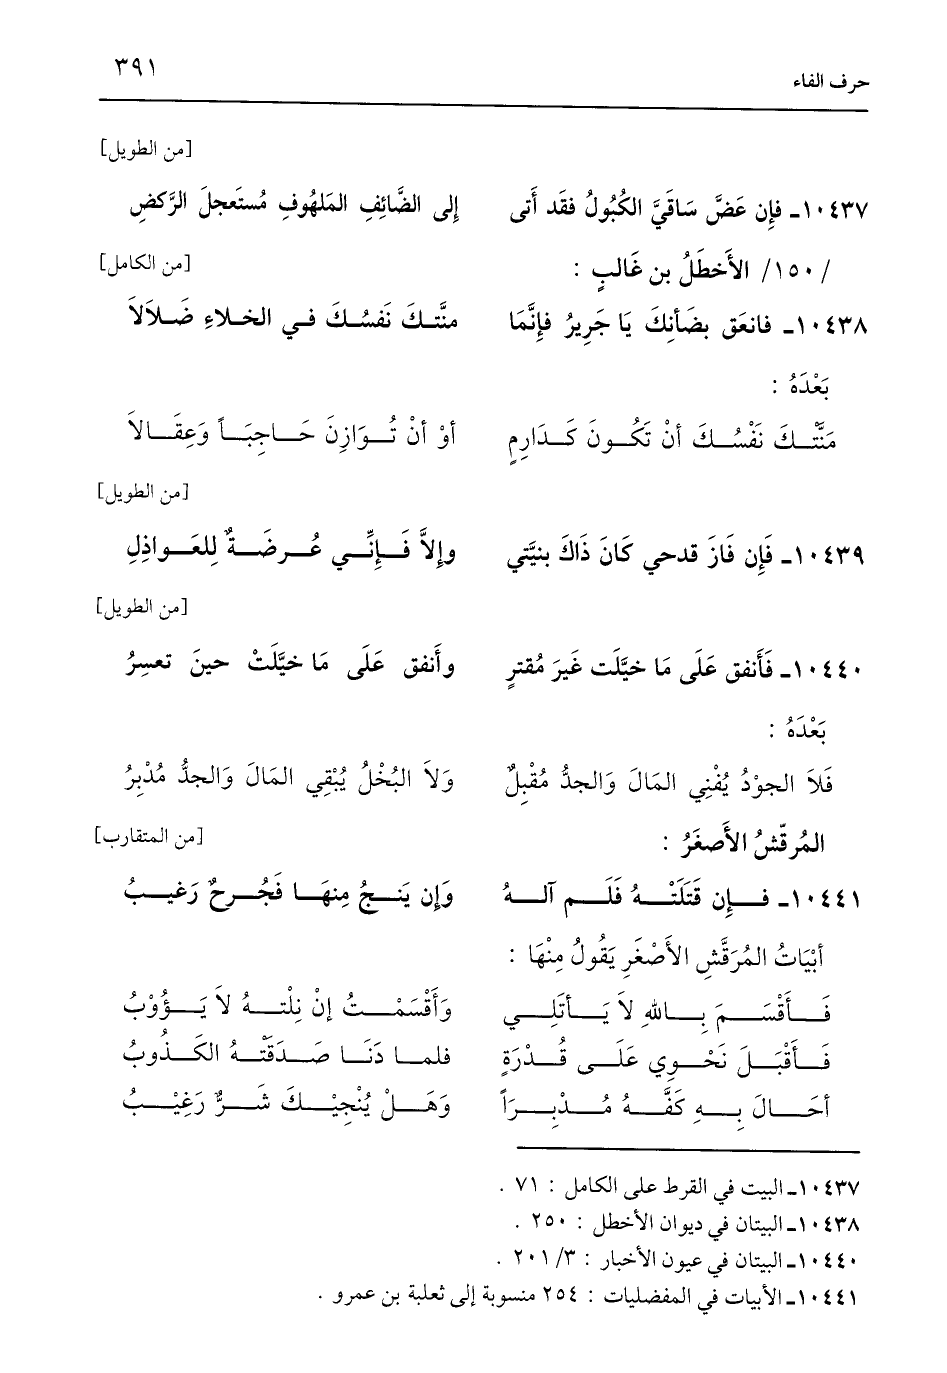 حرف الفاء ٣٩١
[من الطويل]
١٠٤٣٧ـ فإِن عَضَّ سَاقَيَّ الكُبُولُ فقَد أَتى إِلى الضَّائِفِ المَلهُوفِ مُستَعجلَ الرَّكضِ
/١٥٠/ الأَخطَلُ بن غَالبٍ : [من الكامل]
١٠٤٣٨ـ فانعَق بضَأنِكَ يَا جَريرُ فإِنَّمَا منَّتكَ نَفسُكَ في الخلاءِ ضَلاَلاَ
بَعْدَهُ :
مَنَّتْكَ نَفْسُكَ أنْ تَكُونَ كَدَارِمٍ أوْ أنْ تُوَازِنَ حَاجِبَاً وَعِقَالاَ
[من الطويل]
١٠٤٣٩ـ فَإِن فَازَ قدحي كَانَ ذَاكَ بنيَّتي وإِلاَّ فَإِنِّي عُرضَةٌ لِلعَواذِلِ
[من الطويل]
١٠٤٤٠ـ فَأَنفق عَلَى مَا خيَّلَت غَيرَ مُقترٍ وأَنفق عَلَى مَا خيَّلَتْ حينَ تعسِرُ
بَعْدَهُ :
فَلاَ الجوْدُ يُفْنِي المَالَ وَالجدُّ مُقْبِلٌ وَلاَ البُخْلُ يُبْقِي المَالَ وَالجدُّ مُدْبِرُ
المُرقّشُ الأَصغَرُ : [من المتقارب]
١٠٤٤١ـ فإِن قَتَلَتْهُ فَلَم آلهُ وَإِن يَنجُ مِنهَا فَجُرحٌ رَغيبُ
أبْيَاتُ المُرَقَّشِ الأَصْغَرِ يَقُولُ مِنْهَا :
فَأَقْسَمَ بِاللهِ لاَ يَأتَلِي وَأَقْسَمْتُ إنْ نِلْتهُ لاَ يَؤُوْبُ
فَأَقْبَلَ نَحْوِي عَلَى قُدْرَةٍ فلما دَنَا صَدَقَتْهُ الكَذُوبُ
أحَالَ بِهِ كَفَّهُ مُدْبِرَاً وَهَلْ يُنْجِيْكَ شَرٌّ رَغِيْبُ
١٠٤٣٧ـ البيت في القرط على الكامل : ٧١ .
١٠٤٣٨ـ البيتان في ديوان الأخطل : ٢٥٠ .
١٠٤٤٠ـ البيتان في عيون الأخبار : ٣/ ٢٠١ .
١٠٤٤١ـ الأبيات في المفضليات : ٢٥٤ منسوبة إلى ثعلبة بن عمرو .